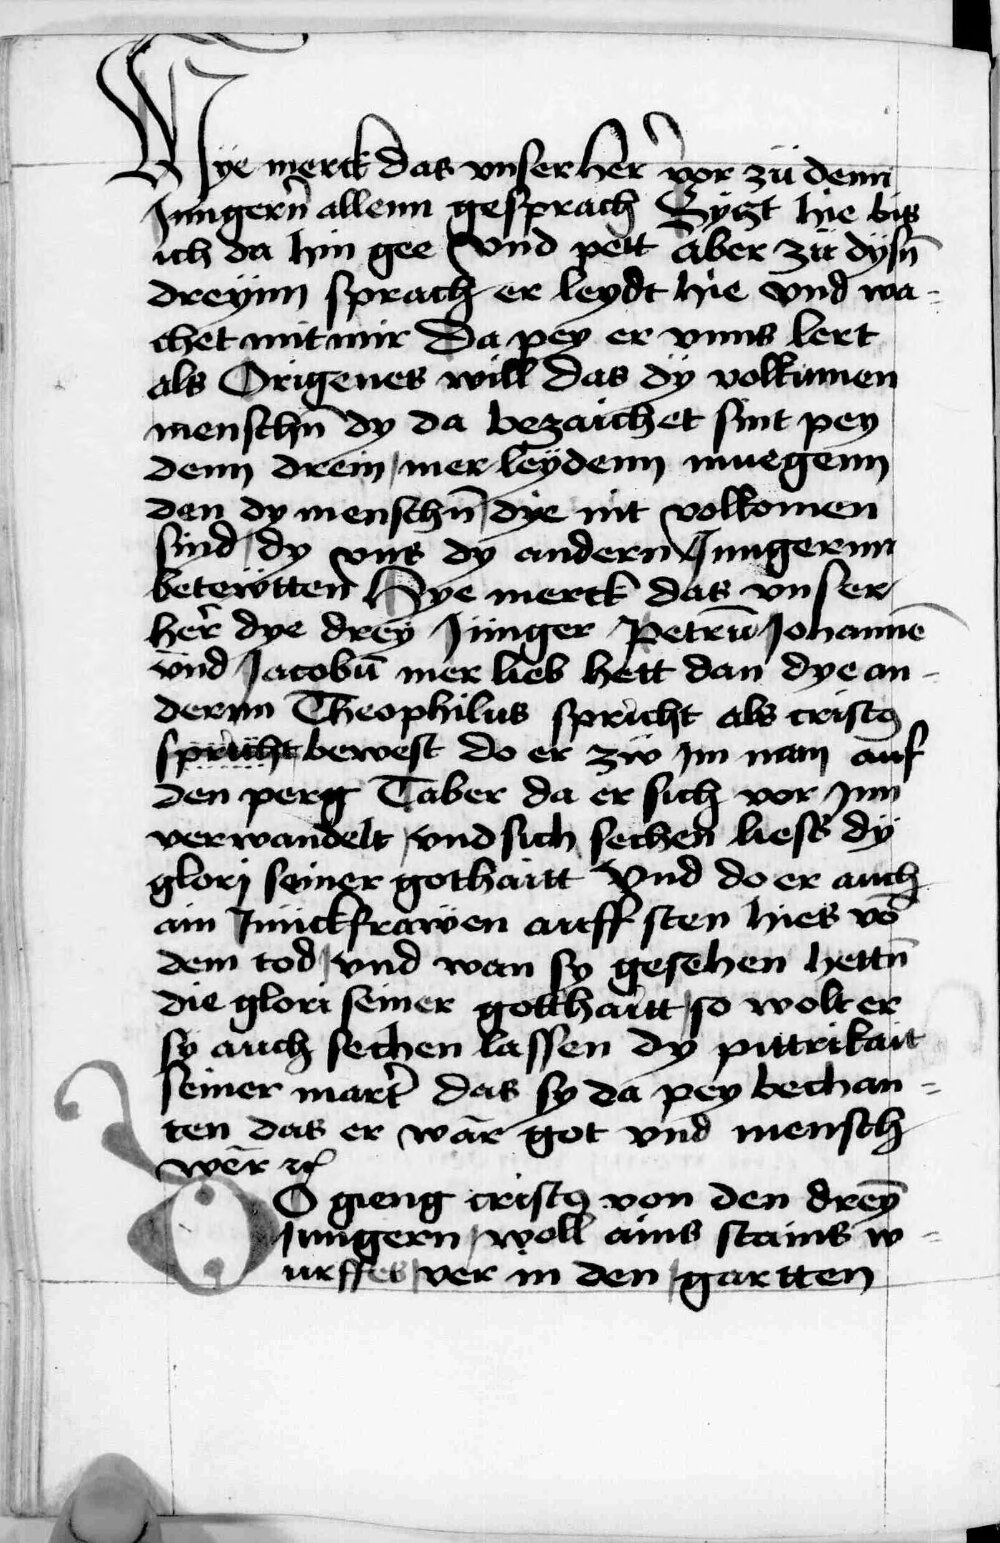 Hye merck das vnser her vor zu denn
Jungern̄ allenn gesprach Syzt hie bis
ich da hin gee Vnd pett aber zu dysn̄
dreynn sprach er leydt hie vnd wa-
chet mit mir Da pey er vnns lert
als Origenes will das dÿ volkumen
menschn̄ dy da bezaichet sint pey
denn drein mer leydenn muegenn
den dy menschn̄ dye nit volkomen
sind dy vns dy andern Jungernn
betewtten Hye merck das vnser
her dye drey Junger Petrū Johannē
vnd Jacobū mer lieb hett dan dye an-
dernn Theophilus spricht als cristꝰ
spricht bewest do er zw im nam auf
den perg Taber da er sich vor inn
verwandelt vnd sich sechen liess dy
glorj seiner gothaitt Vnd do er auch
ain Junckfrawen auff sten hies vō
dem tod vnd wan sy gesehen hettn̄
die glori seiner gotthaitt so wolt er
sy auch sechen lassen dy pittrikait
seiner marter das sy da pey bechan-
ten das er war got vnd mensch
wer ꝛc
DO gieng cristꝰ von den dreӯ
Jungern woll ains stains w-
urffes ver in den gartten